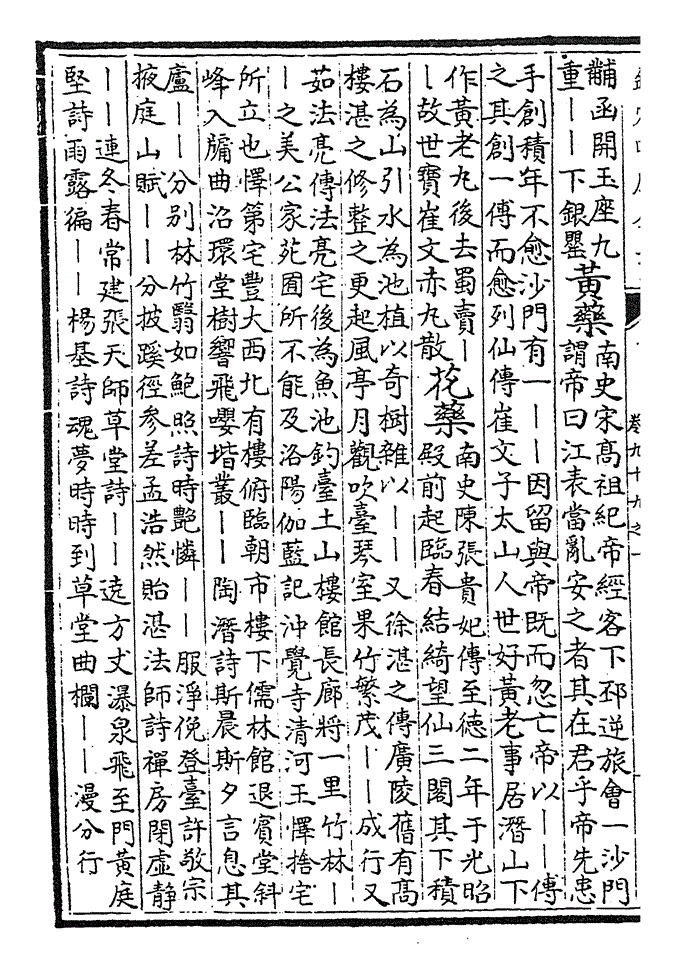 卷九十九之一
黼函開玉座九
重——下銀罌
黃藥
南史宋高祖紀帝經客下邳逆旅會一沙門
謂帝曰江表當亂安之者其在君乎帝先患
手創積年不愈沙門有一——因留與帝既而忽亡帝以——傅
之其創一傅而愈列仙傳崔文子太山人世好黃老事居潛山下
作黃老丸後去蜀賣—
—故世寶崔文赤丸散
花藥
南史陳張貴妃傳至德二年于光昭
殿前起臨春結綺望仙三閣其下積
石為山引水為池植以奇樹雜以——又徐湛之傳廣陵舊有高
樓湛之修整之更起風亭月觀吹臺琴室果竹繁茂——成行又
茹法亮傳法亮宅後為魚池釣臺土山樓館長廊將一里竹林—
—之美公家苑囿所不能及洛陽伽藍記沖覺寺清河王懌捨宅
所立也懌第宅豐大西北有樓俯臨朝市樓下儒林館退賓堂斜
峰入牖曲沼環堂樹響飛嚶堦叢——陶潛詩斯晨斯夕言息其
廬——分別林竹翳如鮑照詩時艷憐——服淨俛登臺許敬宗
掖庭山賦——分披蹊徑參差孟浩然貽湛法師詩禪房閉虛靜
——連冬春常建張天師草堂詩——遶方丈瀑泉飛至門黃庭
堅詩雨露徧——楊基詩魂夢時時到草堂曲欄——漫分行